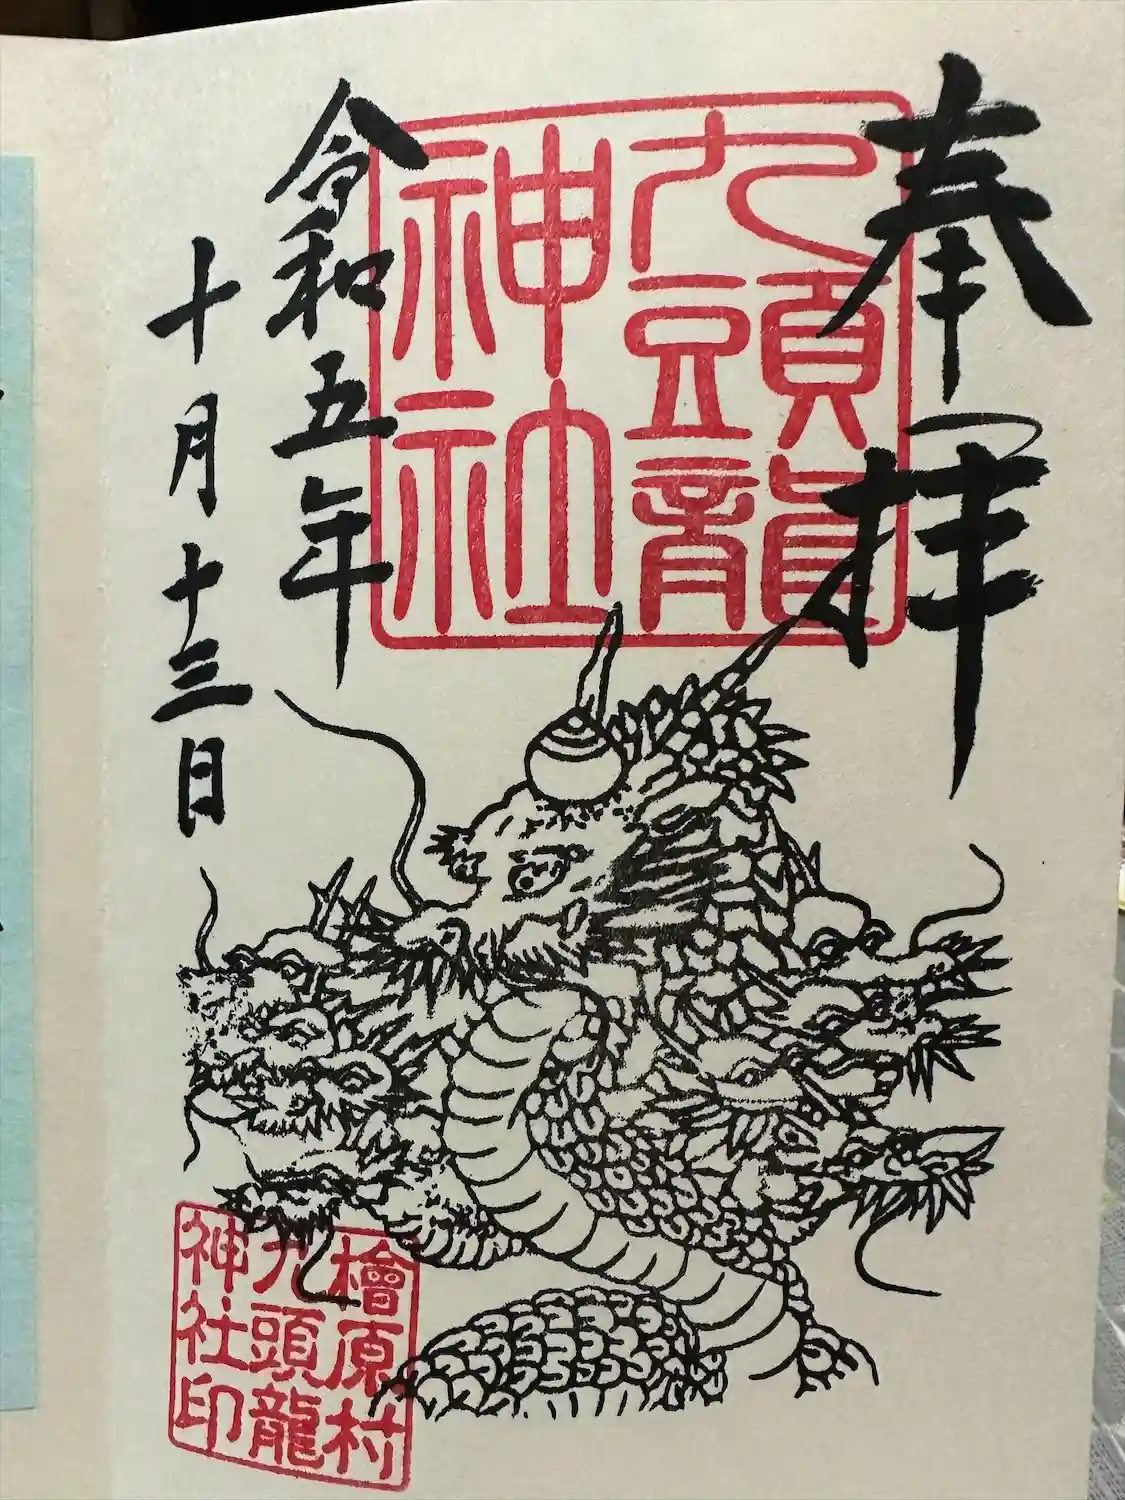 奉拝
九頭龍
神社
令和五年
十月十三日
檜原村
九頭龍
神社印